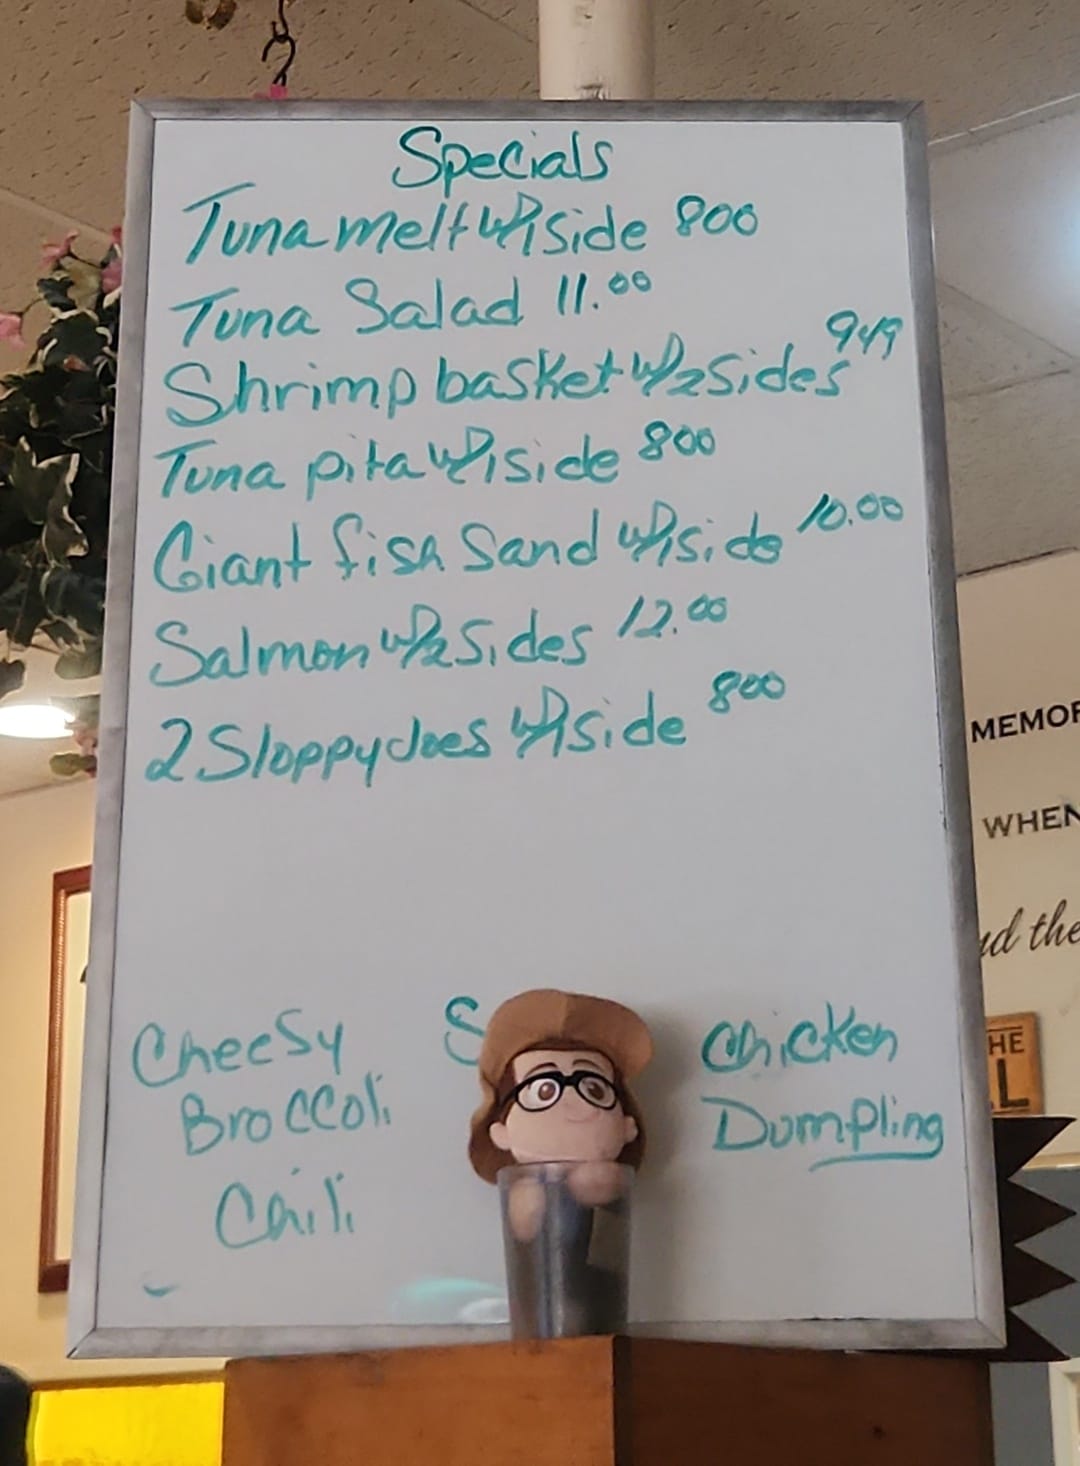 Specials
Tuna melt w/1side 800
Tuna Salad 11.00
Shrimp basket w/2sides 949
Tuna pita w/1side 800
Giant fish Sand w/1side 10.00
Salmon w/2 Sides 12.00
2 Sloppy Joes w/1side 800
Cheesy
Broccoli
Chili
Chicken
Dumpling
MEMOR
WHEN
nd the
HE
L